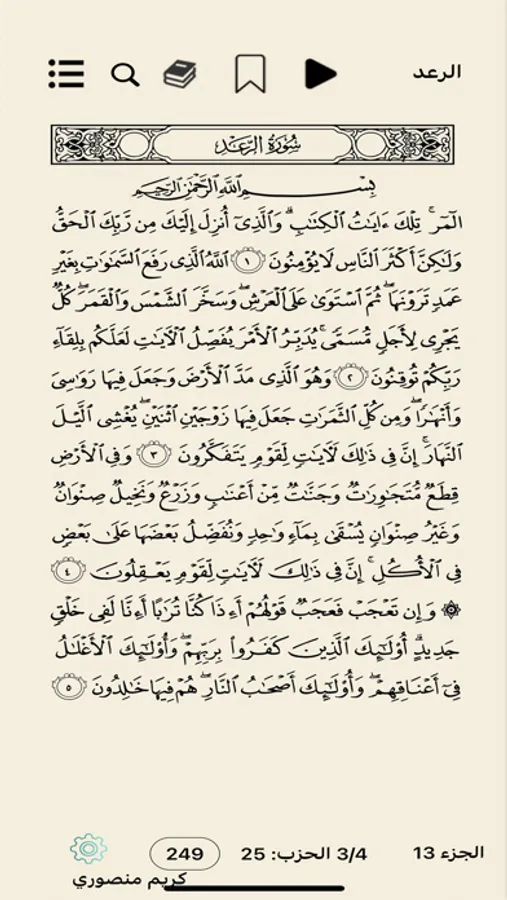 الرعد
سُورَةُ الرَّعْدِ
بِسْمِ اللَّهِ الرَّحْمَٰنِ الرَّحِيمِ
الٓمٓر ۚ تِلْكَ ءَايَٰتُ الْكِتَٰبِ ۗ وَالَّذِىٓ أُنزِلَ إِلَيْكَ مِن رَّبِّكَ الْحَقُّ
وَلَٰكِنَّ أَكْثَرَ النَّاسِ لَا يُؤْمِنُونَ ١ اللَّهُ الَّذِى رَفَعَ السَّمَٰوَٰتِ بِغَيْرِ
عَمَدٍ تَرَوْنَهَا ۖ ثُمَّ اسْتَوَىٰ عَلَى الْعَرْشِ ۖ وَسَخَّرَ الشَّمْسَ وَالْقَمَرَ ۖ كُلٌّ
يَجْرِى لِأَجَلٍ مُّسَمًّى ۚ يُدَبِّرُ الْأَمْرَ يُفَصِّلُ الْءَايَٰتِ لَعَلَّكُم بِلِقَآءِ
رَبِّكُمْ تُوقِنُونَ ٢ وَهُوَ الَّذِى مَدَّ الْأَرْضَ وَجَعَلَ فِيهَا رَوَٰسِىَ
وَأَنْهَٰرًا ۖ وَمِن كُلِّ الثَّمَرَٰتِ جَعَلَ فِيهَا زَوْجَيْنِ اثْنَيْنِ ۖ يُغْشِى الَّيْلَ
النَّهَارَ ۚ إِنَّ فِى ذَٰلِكَ لَءَايَٰتٍ لِّقَوْمٍ يَتَفَكَّرُونَ ٣ وَفِى الْأَرْضِ
قِطَعٌ مُّتَجَٰوِرَٰتٌ وَجَنَّٰتٌ مِّنْ أَعْنَٰبٍ وَزَرْعٌ وَنَخِيلٌ صِنْوَانٌ
وَغَيْرُ صِنْوَانٍ يُسْقَىٰ بِمَآءٍ وَٰحِدٍ وَنُفَضِّلُ بَعْضَهَا عَلَىٰ بَعْضٍ
فِى الْأُكُلِ ۚ إِنَّ فِى ذَٰلِكَ لَءَايَٰتٍ لِّقَوْمٍ يَعْقِلُونَ ٤
۞ وَإِن تَعْجَبْ فَعَجَبٌ قَوْلُهُمْ أَءِذَا كُنَّا تُرَٰبًا أَءِنَّا لَفِى خَلْقٍ
جَدِيدٍ ۗ أُو۟لَٰٓئِكَ الَّذِينَ كَفَرُوا۟ بِرَبِّهِمْ ۖ وَأُو۟لَٰٓئِكَ الْأَغْلَٰلُ
فِىٓ أَعْنَاقِهِمْ ۖ وَأُو۟لَٰٓئِكَ أَصْحَٰبُ النَّارِ ۖ هُمْ فِيهَا خَٰلِدُونَ ٥
الجزء 13 3/4 الحزب: 25 249
كريم منصوري